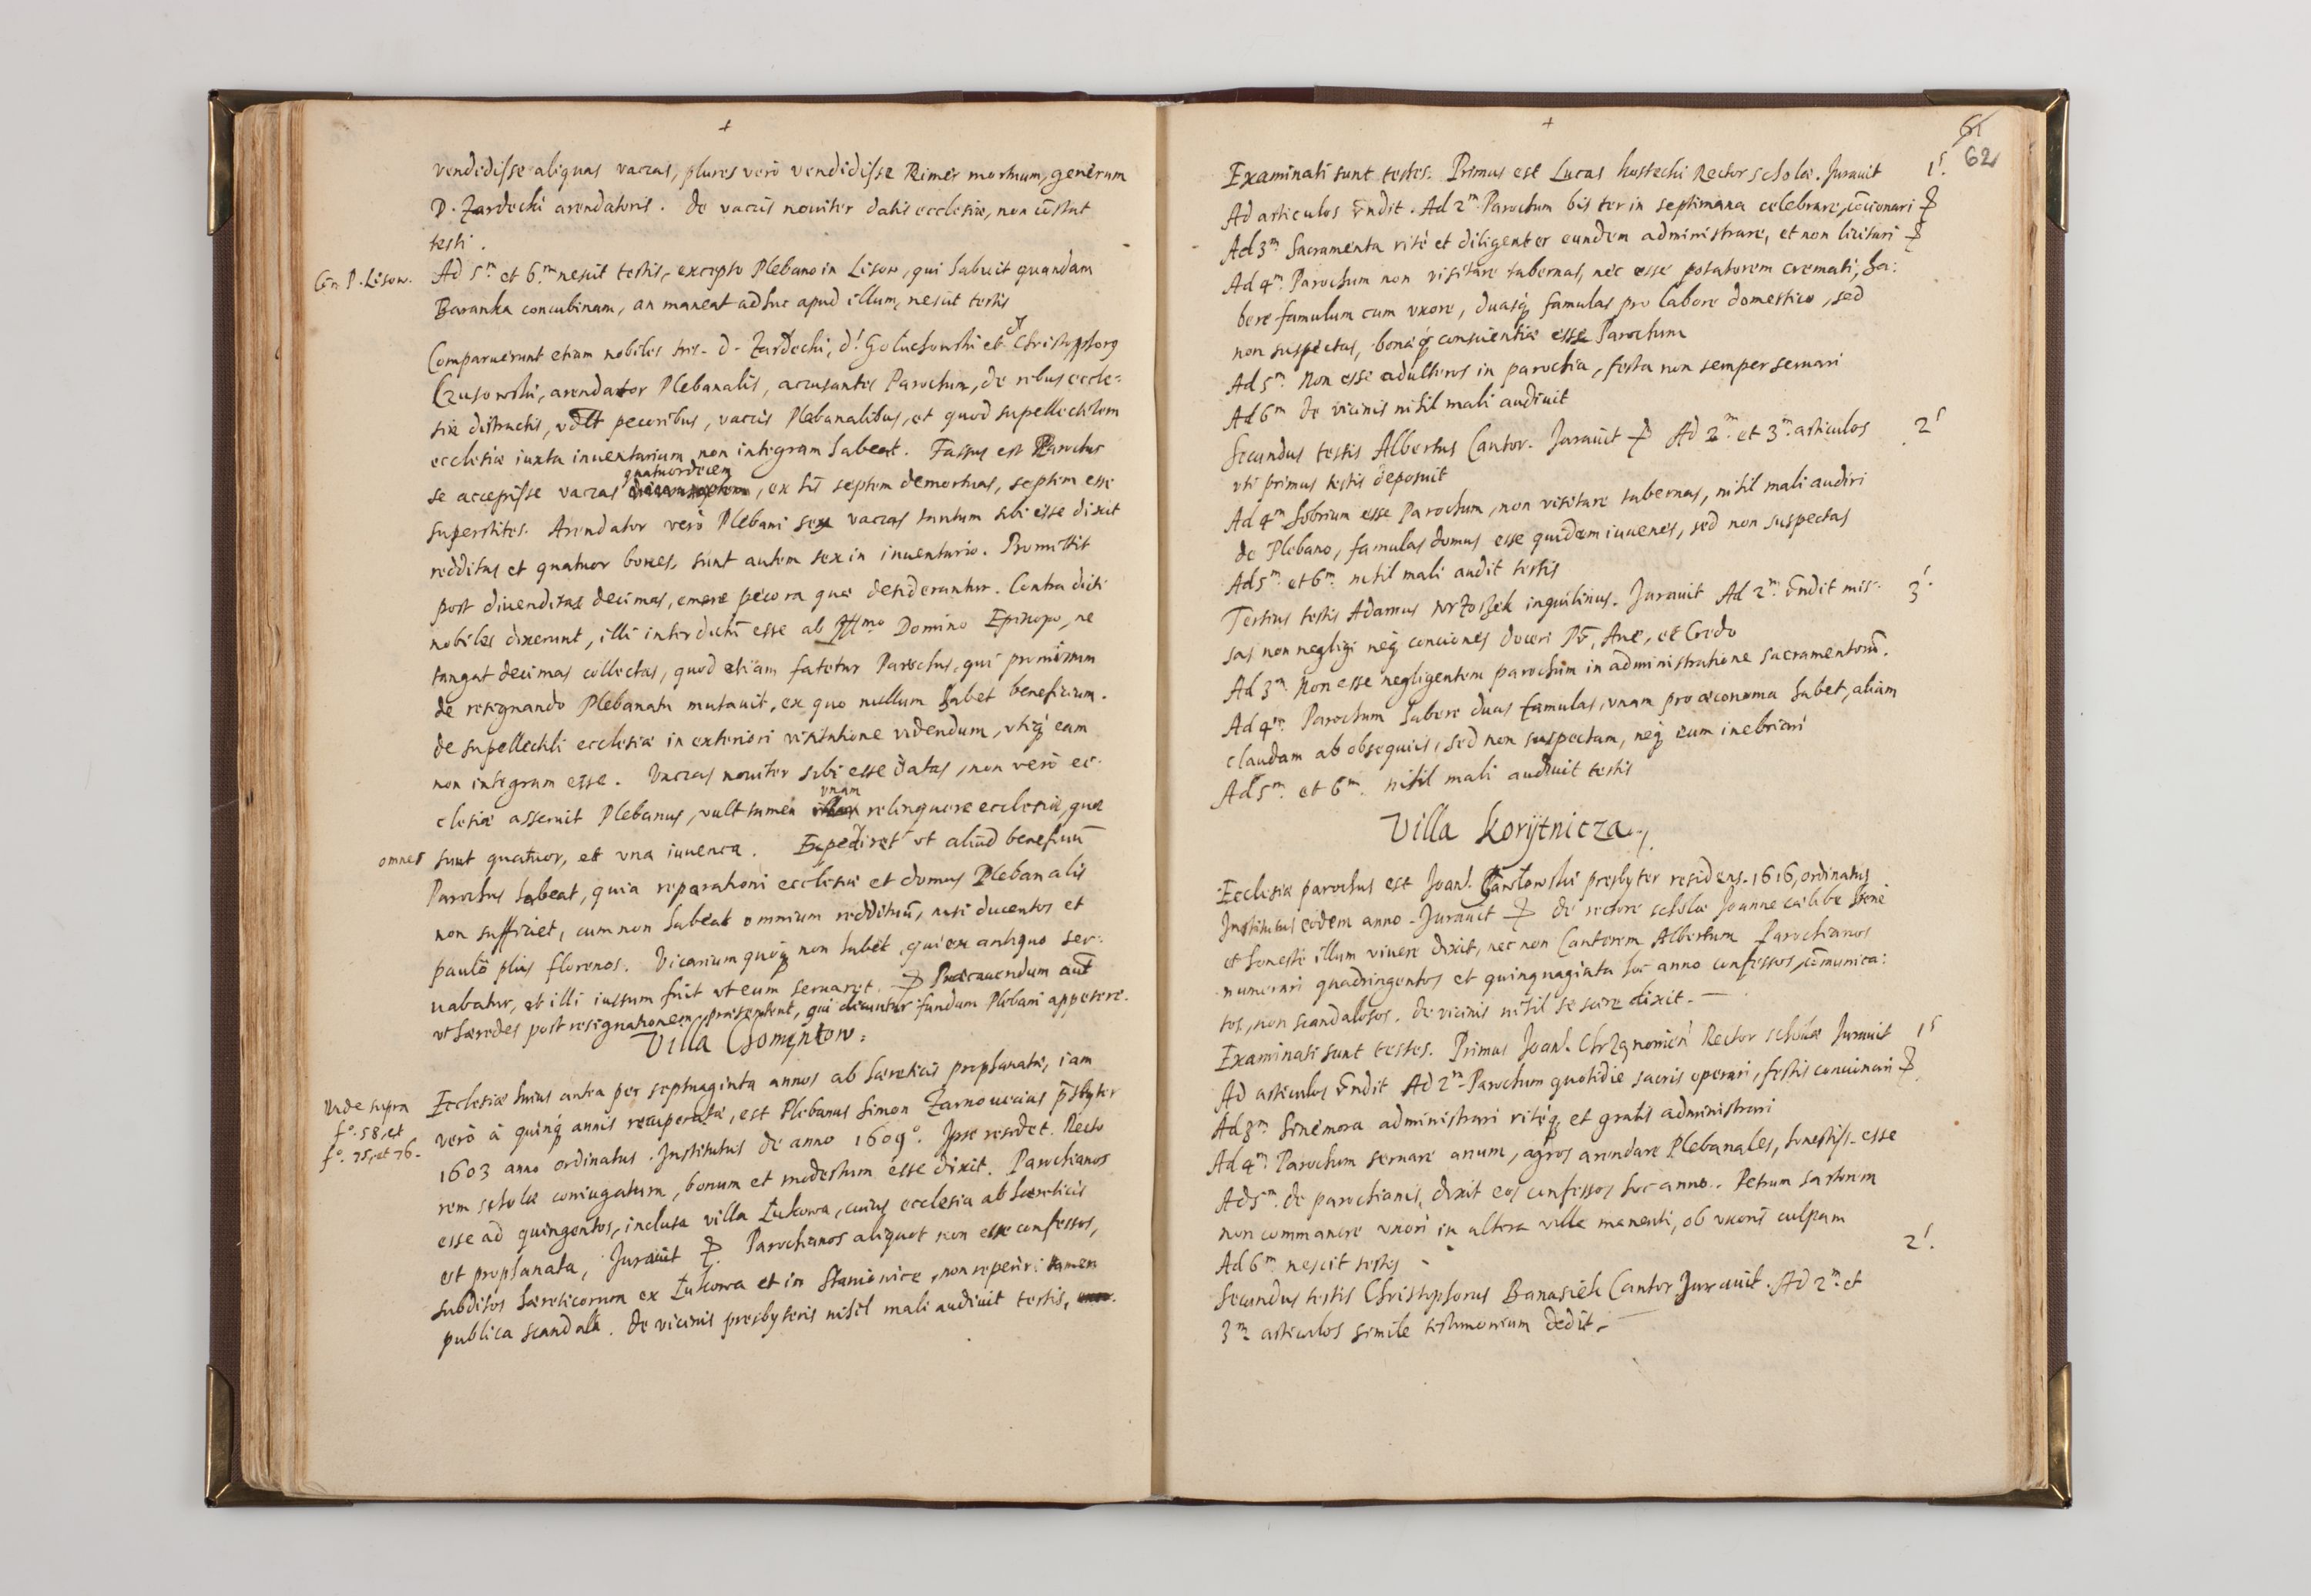 +
vendidisse aliquas vaccas, plures verò vendidisse Rimer mortuum, generum
D. Zardecki arendatoris. de vaccis nouiter datis ecclesiæ, non cōstat
testi.
Cōn. P. Lisow.
Ad 5ᵐ et 6ᵐ nescit testis, excepto Plebano in Lisow, qui habuit quandam
Baranka concubinam, an maneat adhuc apud illum, nescit testis
Comparuerunt etiam nobiles tres. d. Zardecki, d! Goluchowski et Christophorꝯ
Czuhowski, arendator Plebanalis, accusantes Parochum, de rebus eccle:
siæ distractis, pecoribus, vaccis Plebanalibus, et quod supellectilem
ecclesiæ iuxta inuentarium non integram habeat. Fassus est Parochus
quatuordecem
se accepisse vaccas, ex his septem demortuas, septem esse
superstites. Arendator verò Plebani sex vaccas tantum sibi esse dixit
redditas et quatuor boues, sunt autem sex in inuentario. Promittit
post diuenditas decimas, emere pecora quæ desiderantur. Contra dicti
nobiles dixerunt, illi interdictū esse ab Illᵐᵒ Domino Episcopo, ne
tangat decimas collectas, quod etiam fatetur Parochus, qui promissum
de resignando Plebanatu mutauit, ex quo nullum habet beneficium.
de supellectili ecclesiæ in exteriori visitatione videndum, vtiqꝫ eam
non integram esse. Vaccas nouiter sibi esse datas, non verò ec:
vnam
clesiæ asseruit Plebanus, vult tamen relinquere ecclesiæ, quæ
omnes
sunt quatuor, et vna iuuenca. Expediret vt aliud beneficiū
Parochus habeat, quia reparationi ecclesiæ et domus Plebanalis
non sufficiet, cum non habeat omnium reddituū, nisi ducentos et
paulò plus florenos. Vicarium quoqꝫ non habet, qui ex antiquo ser:
uabatur, et illi iussum fuit vt eum seruaret. Præcauendum aut
vt hæredes post resignationem præsentent, qui dicuntur fundum Plebani appetere.
Villa Chomentow:
Ecclesiæ huius antea per septuaginta annos ab hæreticis prophanatæ, iam
Vide supra
fᵒ. 58, et
fᵒ. 75, et 76.
verò à quinqꝫ annis recuperatæ, est Plebanus Simon Zarnouecius pr̄sbyter
1603 anno ordinatus. Institutus de anno 1609ᵒ. Ipse residet. Recto
rem scholæ coniugatum, bonum et modestum esse dixit. Parochianos
esse ad quingentos, inclusa villa Łukowa, cuius ecclesia ab hæreticis
est prophanata, Jurauit ☩ Parochianos aliquot non esse confessos,
subditos hæreticorum ex Łukowa et in Stawienice, non reperiri tamen
publica scandala. de vicinis presbyteris nihil mali audiuit testis,
+
61
62
Examinati sunt testes. Primus est Lucas Kostecki Rector scholæ. Jurauit
1ˢ.
Ad articulos r̄ndit. Ad 2ᵐ Parochum bis ter in septimana celebrare, cōcionari ☩
Ad 3ᵐ Sacramenta ritè et diligenter eundem administrare, et non licitari ☩
Ad 4ᵐ Parochum non visitare tabernas, nec esse potatorem cremati, ha:
bere famulum cum vxore, duasqꝫ famulas pro labore domestico, sed
non suspectas, bonæqꝫ conscientiæ esse Parochum
Ad 5ᵐ Non esse adulteros in parochia, festa non semper seruari
Ad 6ᵐ de vicinis nihil mali audiuit
Secundus testis Albertus Cantor. Jurauit ☩ Ad 2ᵐ et 3ᵐ articulos
2ˢ
vti primus testis deposuit
Ad 4ᵐ Sobrium esse Parochum, non visitare tabernas, nihil mali audiri
de Plebano, famulas domus esse quidem iuuenes, sed non suspectas
Ad 5ᵐ et 6ᵐ nihil mali audit testis
Tertius testis Adamus inquilinus. Jurauit Ad 2ᵐ r̄ndit mis:
3!
sas non negligi neqꝫ conciones doceri Pr̄, Aue, et Credo
Ad 3ᵐ Non esse negligentem parochum in administratione sacramentorū.
Ad 4ᵐ Parochum habere duas famulas, vnam pro œconoma habet, aliam
claudam ab obsequiis, sed non suspectam, neqꝫ eum inebriari
Ad 5ᵐ et 6ᵐ nihil mali audiuit testis
Villa Korÿtnicza
Ecclesiæ parochus est Joan! Pawłowski presbyter residens. 1616, ordinatus
Institutus eodem anno. Jurauit ☩ de rectore scholæ Joanne cælibe bene
et honestè illum viuere dixit, nec non Cantorem Albertum Parochianos
numerari quadringentos et quinquaginta hoc anno confessos, cōmunica:
tos, non scandalosos. de vicinis nihil se scire dixit. —
Examinati sunt testes. Primus Joan! Rector scholæ Jurauit
1ˢ
Ad articulos r̄ndit Ad 2ᵐ Parochum quotidie sacris operari, festis concionari ☩
Ad 3ᵐ Sine mora administrari ritèqꝫ et gratis administrari
Ad 4ᵐ Parochum seruare anum, agros arendare Plebanales, honestiss. esse
Ad 5ᵐ de parochianis, dixit eos confessos hoc anno. Petrum sartorem
non commanere vxori in altera villa manenti, ob vxoris culpam
Ad 6ᵐ nescit testis
2!.
Secundus testis Christophorus Banasick Cantor Jurauit. Ad 2ᵐ et
3ᵐ articulos simile testimonium dedit.